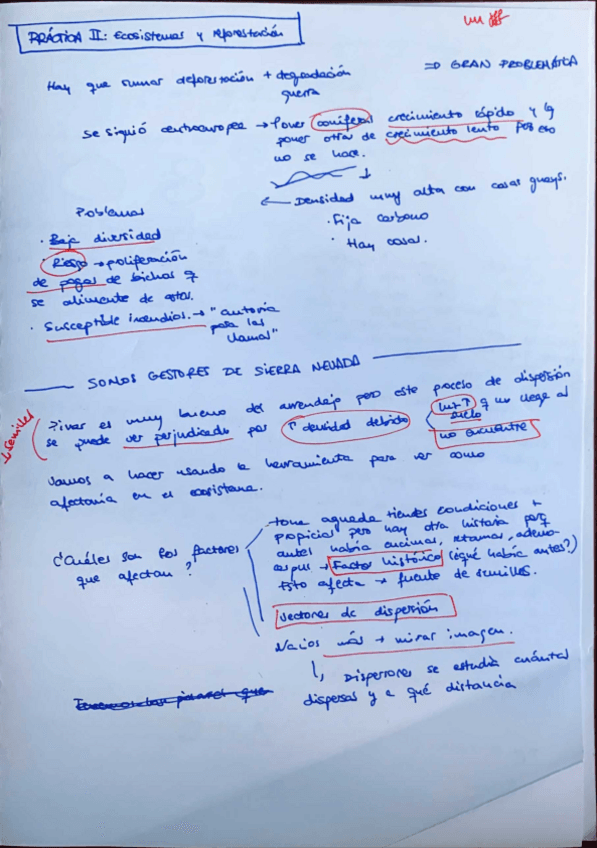 PRÁCTICA II: Ecosistemas y reforestación
Hay que sumar deforestación + degradación
guerra
⇒ GRAN PROBLEMÁTICA
Se siguió centroeuropea → Poner coniferas crecimiento rápido y
poner otras de crecimiento lento por eso
no se hace.
Densidad muy alta con cosas guays.
· Fija carbono
· Hay cosas.
Problemas
· Baja diversidad
· Riesgo → poliferación
de plagas de bichos q
se alimente de estas.
· Susceptible incendios. → "autovía
para las
llamas"
SOMOS GESTORES DE SIERRA NEVADA
es muy bueno del arrendajo pero este proceso de dispersión
se puede ver perjudicado por ↑ densidad debido
q no llege al
suelo
no encuentre
semillas
Vamos a hacer usando la herramienta para ver como
afectaria en el ecosistema.
¿Cuáles son los factores
que afectan?
toma aguada tienes condiciones +
propicias pero hay otra historia porq
antes habría encinas, retamas, adeno-
carpus → Factor histórico (¿qué había antes?)
Esto afecta → fuente de semillas.
Vectores de dispersión
Varios más → mirar imagen.
Dispersores se estudia cuántas
dispersas y a qué distancia